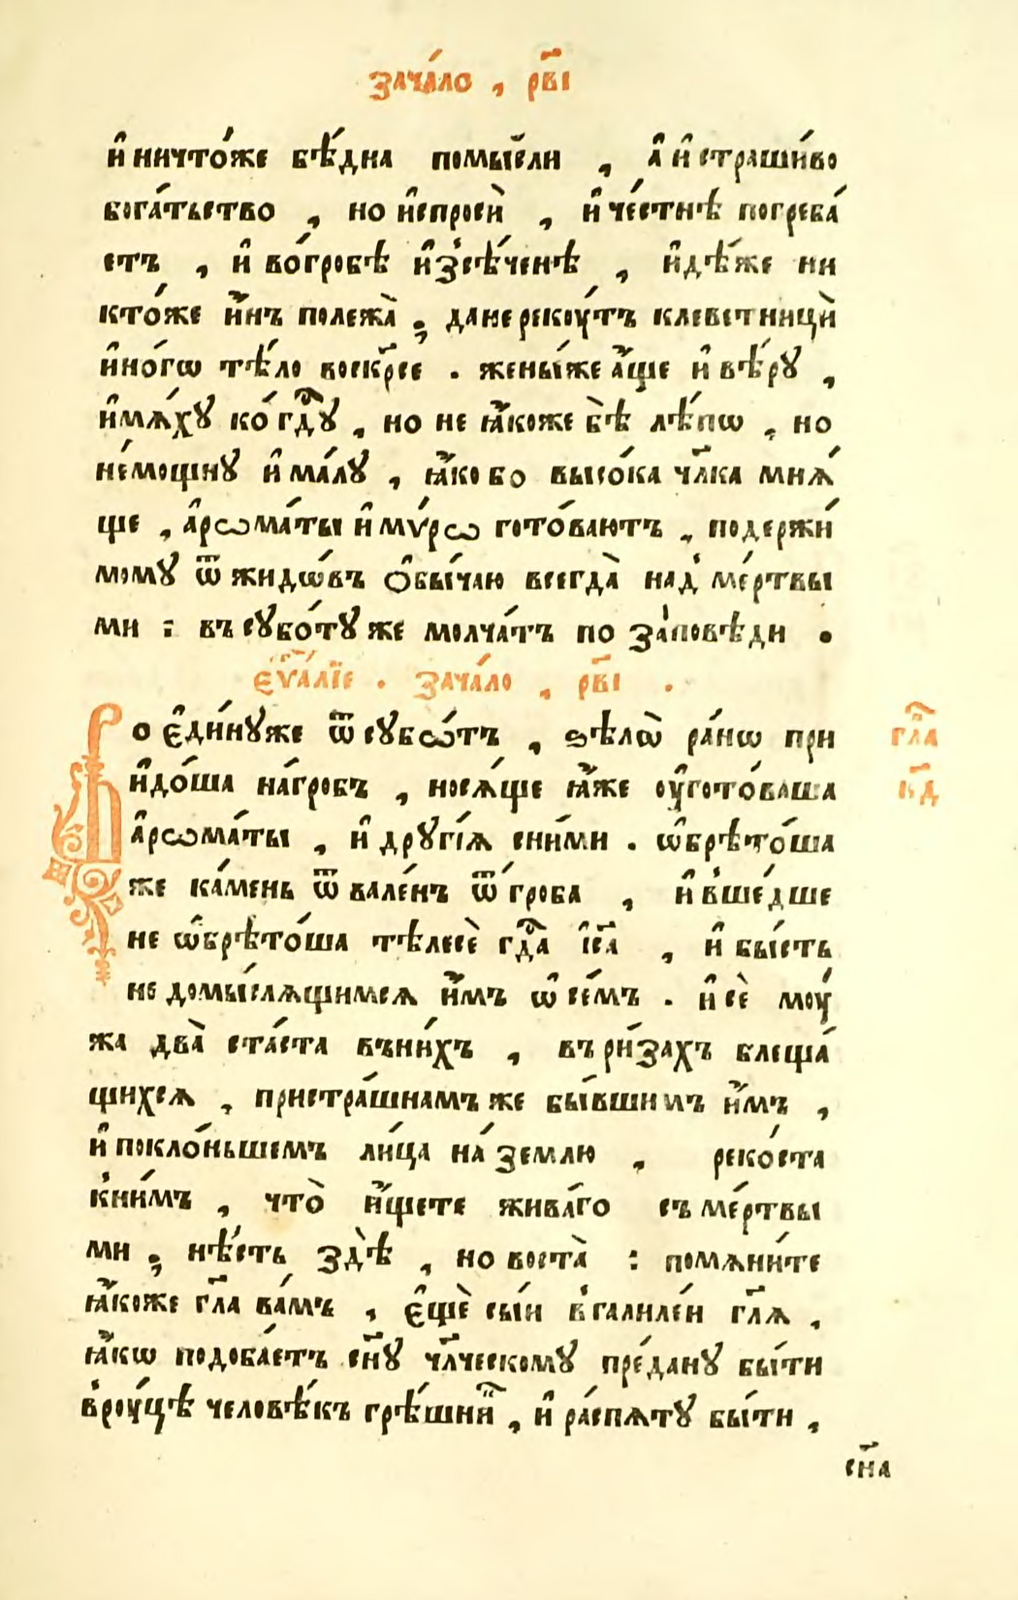 зача́ло , рв҃і
и҆ ничто́же бѣ́дна помы́сли , а҆ и҆ страши́во
бога́тьство , но и҆спросѝ , и҆ че́стнѣ погреба́
етъ , и҆ во́гробѣ и҆зсѣ́ченѣ , и҆дѣ́же ни
кто́же и҆́нъ полежа̀ ; да не реку́тъ клеветницѝ
и҆но́гѡ тѣ́ло воскр҃се . жены́же а҆́ще и҆ вѣ́рꙋ ,
и҆мѧ́хꙋ ко́ гдⷭ҇ꙋ , но не ꙗ҆́коже бѣ̀ лѣ́пѡ , но
не́мощнꙋ и҆ ма́лꙋ , ꙗ҆́ко бо высо́ка чл҃ка мнѧ́
ще , а҆рѡма́ты и҆ мѵ́рѡ гото́ваютъ , подержи́
момꙋ ѿ жидѡ́въ ѻ҆бы́чаю всегда̀ над̾ ме́ртвы
ми : въ сꙋбо́тꙋ же молча́тъ по за́повѣди .
є҆ѵⷢ҇а́лїе . зача́ло , рв҃і .
Во є҆ди́нꙋже ѿ сꙋбѡ́тъ , ѕѣлѡ̀ ра́нѡ при
и҆до́ша на́гробъ , носѧ́ще ꙗ҆́же ᲂу҆гото́ваша
а҆рѡма́ты , и҆ дрꙋгі́ѧ сни́ми . ѡ҆брѣто́ша
же ка́мень ѿвале́нъ ѿ гроба , и҆ вше́дше
не ѡ҆брѣто́ша тѣлесѐ гдⷭ҇а і҆с҃а , и҆ бы́сть
не домы́слѧщимсѧ и҆́мъ ѡ҆ се́мъ . и҆ сѐ мꙋ́
жа два̀ ста́ста въни́хъ , въ ри́захъ блеща́
щихсѧ , пристра́шнамъ же бы́вшимъ и҆́мъ ,
и҆ покло́ньшемъ ли́ца на́ землю , реко́ста
кни́мъ , что̀ и҆́щете жива́го съ ме́ртвы
ми ; нѣ́сть здѣ̀ , но воста̀ : помѧни́те
ꙗ҆́коже гл҃а ва́мъ , є҆щѐ сы́и в̾галиле́и гл҃ѧ ,
ꙗ҆́кѡ подоба́етъ сн҃ꙋ чл҃ческомꙋ пре́данꙋ бы́ти
в̾рꙋ́цѣ человѣ́къ грѣ́шниⷯ , и҆ ра́спѧтꙋ бы́ти ,
гл҃а
к҃д
сн҃а